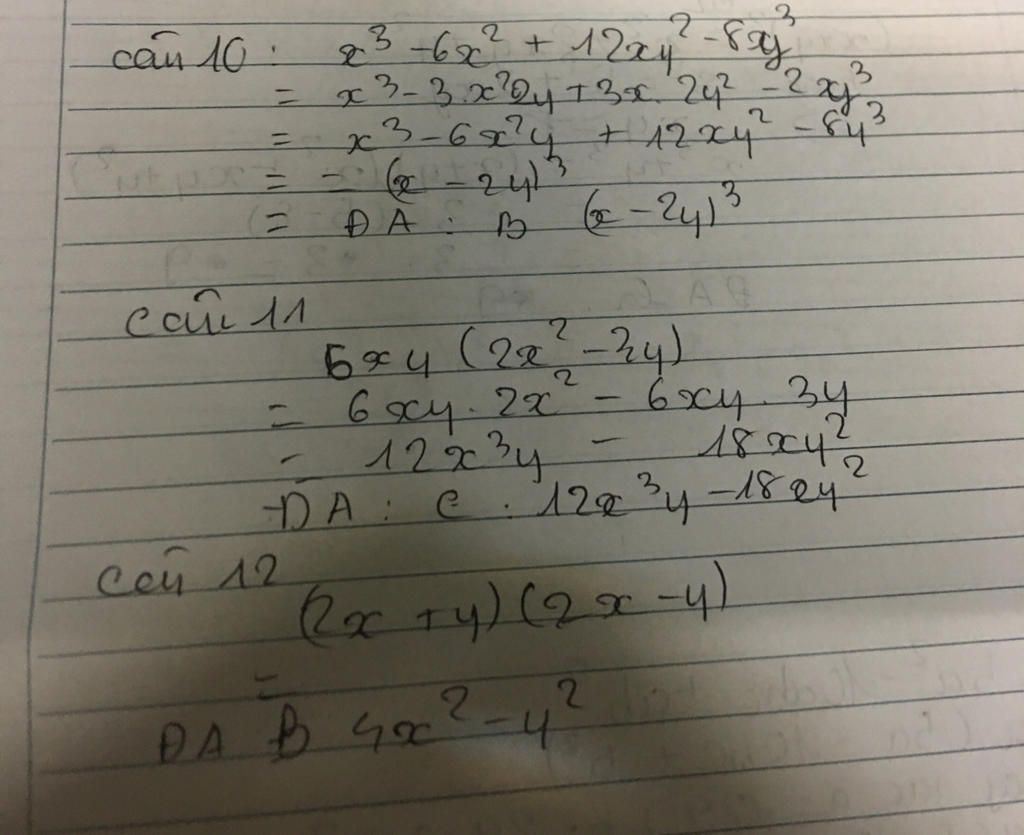 câu 10 : x³ - 6x² + 12xy² - 8xy³
= x³ - 3.x²2y + 3x. 2y² - 2xy³
= x³ - 6x²y + 12xy² - 8y³
= - (x - 2y)³
= ĐA : B (x - 2y)³
câu 11
6xy (2x² - 3y)
= 6xy. 2x² - 6xy. 3y
- 12x³y - 18xy²
ĐA : C . 12x³y - 18xy²
câu 12
(2x + y) (2x - y)
=
ĐA B 4x² - y²